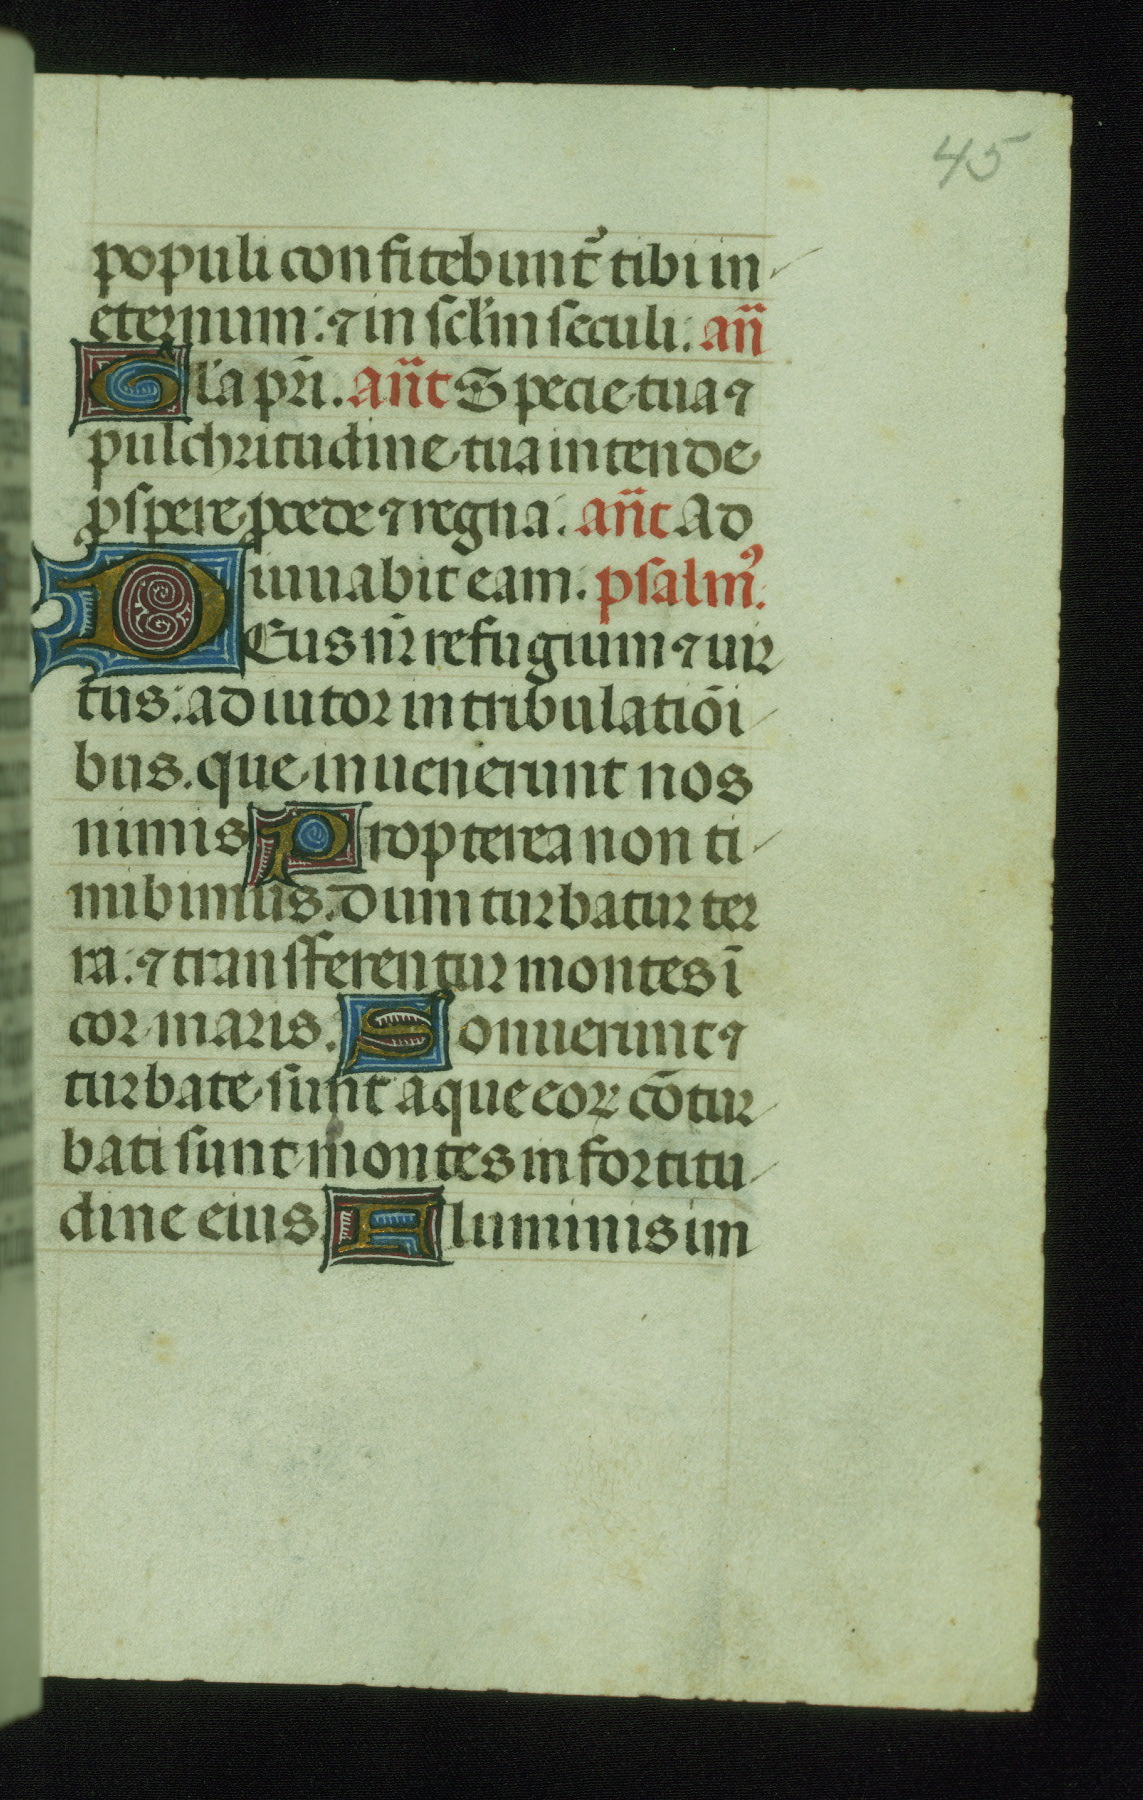 45
populi confitebunt᷑ tibi in
eternum: ⁊ in scl'm seculi: añ
Gl'a pr̃i. añt Specie tua ⁊
pulchritudine tua intende
ꝓspere ꝓcede ⁊ regna: añt Ad
iuuabit eam. psalmꝰ.
DEus nr̃ refugium ⁊ uir
tus: adiutor in tribulatiõi
bus. que inuenerunt nos
nimis Propterea non ti
mibimus. dum turbatur ter
ra: ⁊ transferentur montes ĩ
cor maris. Sonuerunt ⁊
turbate sunt aque eoꝝ cõtur
bati sunt montes in fortitu
dine eius. Fluminis im